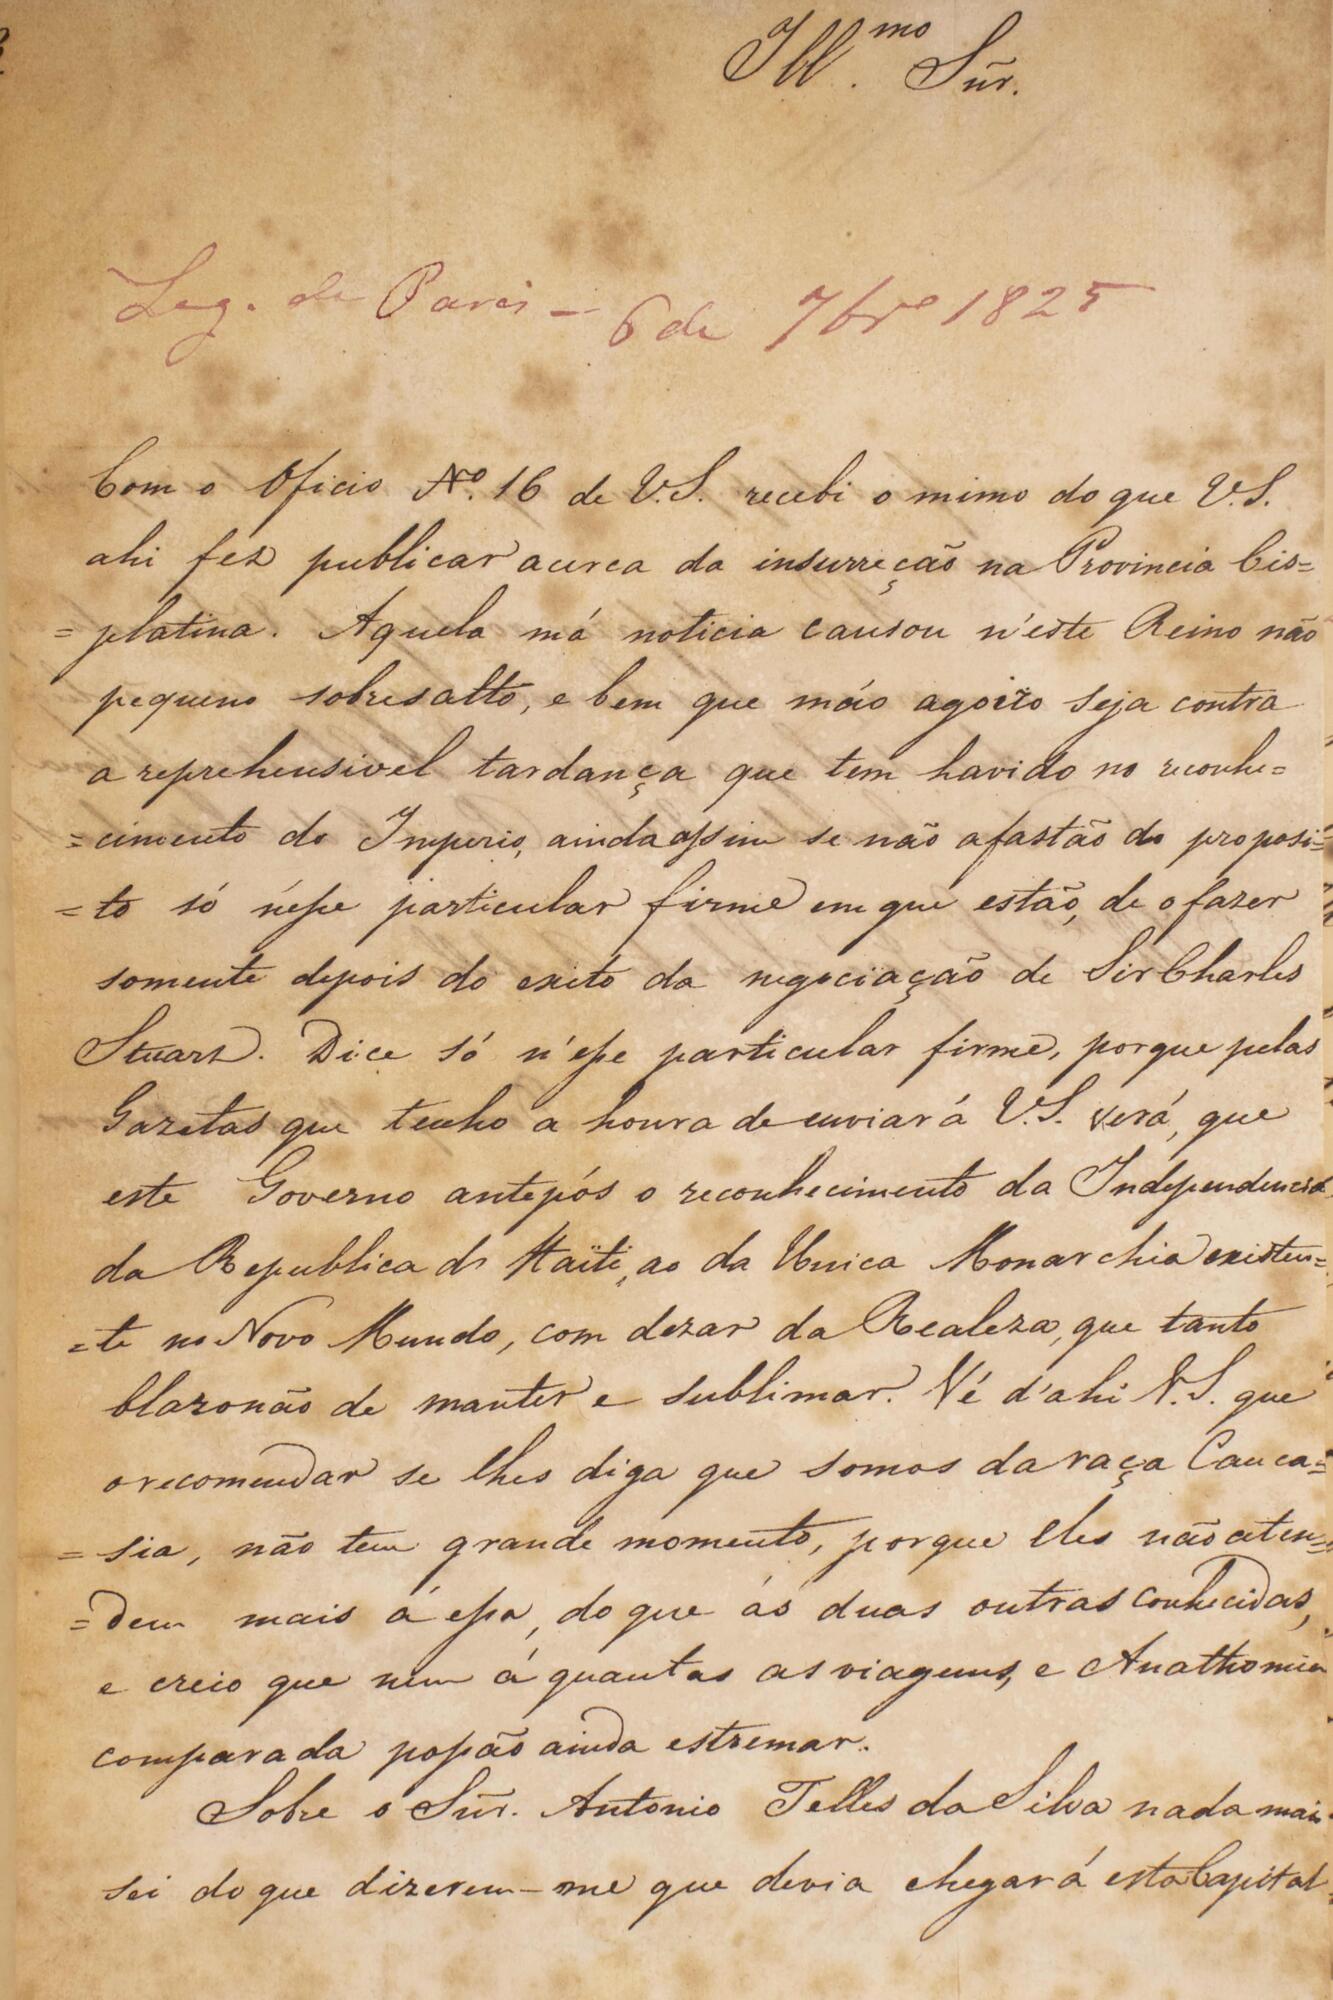 Ill.mo Sñr.
Leg. de Paris — 6 de 7bro 1825
Com o Oficio No. 16 de V.S. recebi o mimo do que V.S.
ahi fez publicar acerca da insurreção na Provincia Cis=
=platina. Aquela má noticia causou n'este Reino não
pequeno sobresalto, e bem que máo agoiro seja contra
a reprehensivel tardança que tem havido no reconhe=
=cimento do Imperio, ainda assim se não afastão do proposi=
=to só n'esse particular firme em que estão, de o fazer
somente depois do exito da negociação de Sir Charles
Stuart. Dice só n'esse particular firme, porque pelas
Gazetas que tenho a honra de enviar á V.S. verá, que
este Governo antepós o reconhecimento da Independencia
da Republica de Haïti, ao da Unica Monarchia existen=
=te no Novo Mundo, com dezar da Realeza, que tanto
blazonão de manter e sublimar. Vé d'ahi V.S. que
o recomendar se lhes diga que somos da raça Cauca=
=sia, não tem grande momento, porque eles não aten=
=dem mais á essa, do que ás duas outras conhecidas,
e creio que nem á quantas as viagens, e Anathomia
comparada possão ainda estremar.
Sobre o Sñr. Antonio Telles da Silva nada mais
sei do que dizerem-me que devia chegar á esta Capital